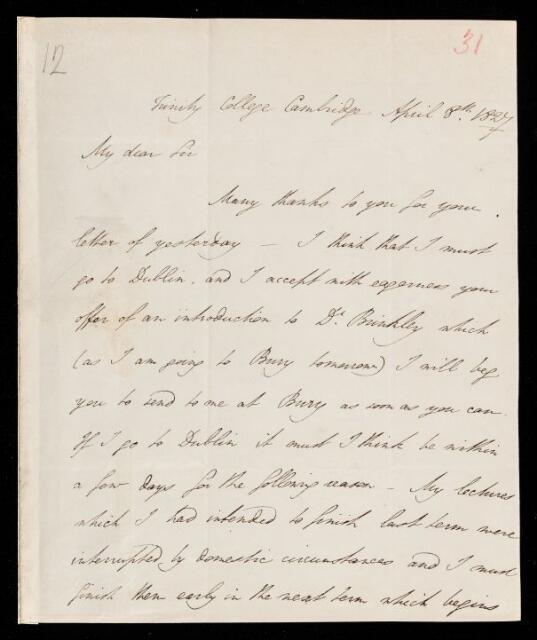 12
31
Trinity College Cambridge April 8th. 1827
My dear Sir
Many thanks to you for your
letter of yesterday — I think that I must
go to Dublin, and I accept with eagerness your
offer of an introduction to Dr. Brinkley which
(as I am going to Bury tomorrow) I will beg
you to send to me at Bury as soon as you can.
If I go to Dublin it must I think be within
a few days for the following reason — My lectures
which I had intended to finish last term were
interrupted by domestic circumstances and I must
finish them early in the next term which begins